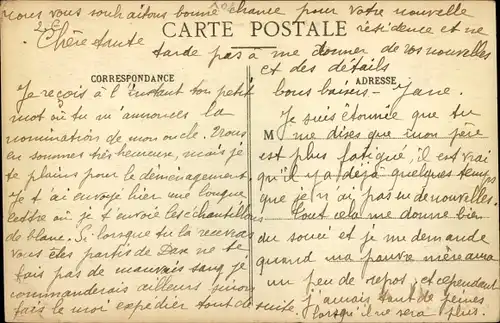 Nous vous souhaitons bonne chance pour votre nouvelle
résidence et ne
tarde pas à me donner de vos nouvelles
et des détails
bons baisers - Jane.
CARTE POSTALE
CORRESPONDANCE
ADRESSE
M
Chère tante
Je reçois à l'instant ton petit
mot où tu m'annonces la
nomination de mon oncle. Nous
en sommes très heureuse, mais je
te plains pour le déménagement.
Je t'ai envoyé hier une longue
lettre où je t'envoie les échantillons
de blanc. Si lorsque tu la recevras
vous êtes partis de Dax ne te
fais pas de mauvais sang je
commanderais ailleurs sinon
fais le moi expédier tout de suite.
Je suis étonnée que tu
me dises que mon père
est plus fatigué, il est vrai
qu'il y a déjà quelques temps
que je n'ai pas eu de nouvelles.
Tout cela me donne bien
du souci et je me demande
quand ma pauvre mère aura
un peu de repos, et cependant
j'aurais tant de peines
lorsqu'il ne sera plus.